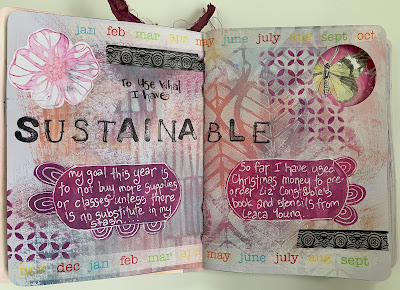 jan feb mar apr may june july aug sept oct
To use what
I have
SUSTAINABLE
my goal this year is
to not buy more supplies
or classes unless there
is no substitute in my
stash....
So far I have used
Christmas money to pre
order Liz Constable's
book and stencils from
Young.
dec jan feb mar apr may june july aug sept